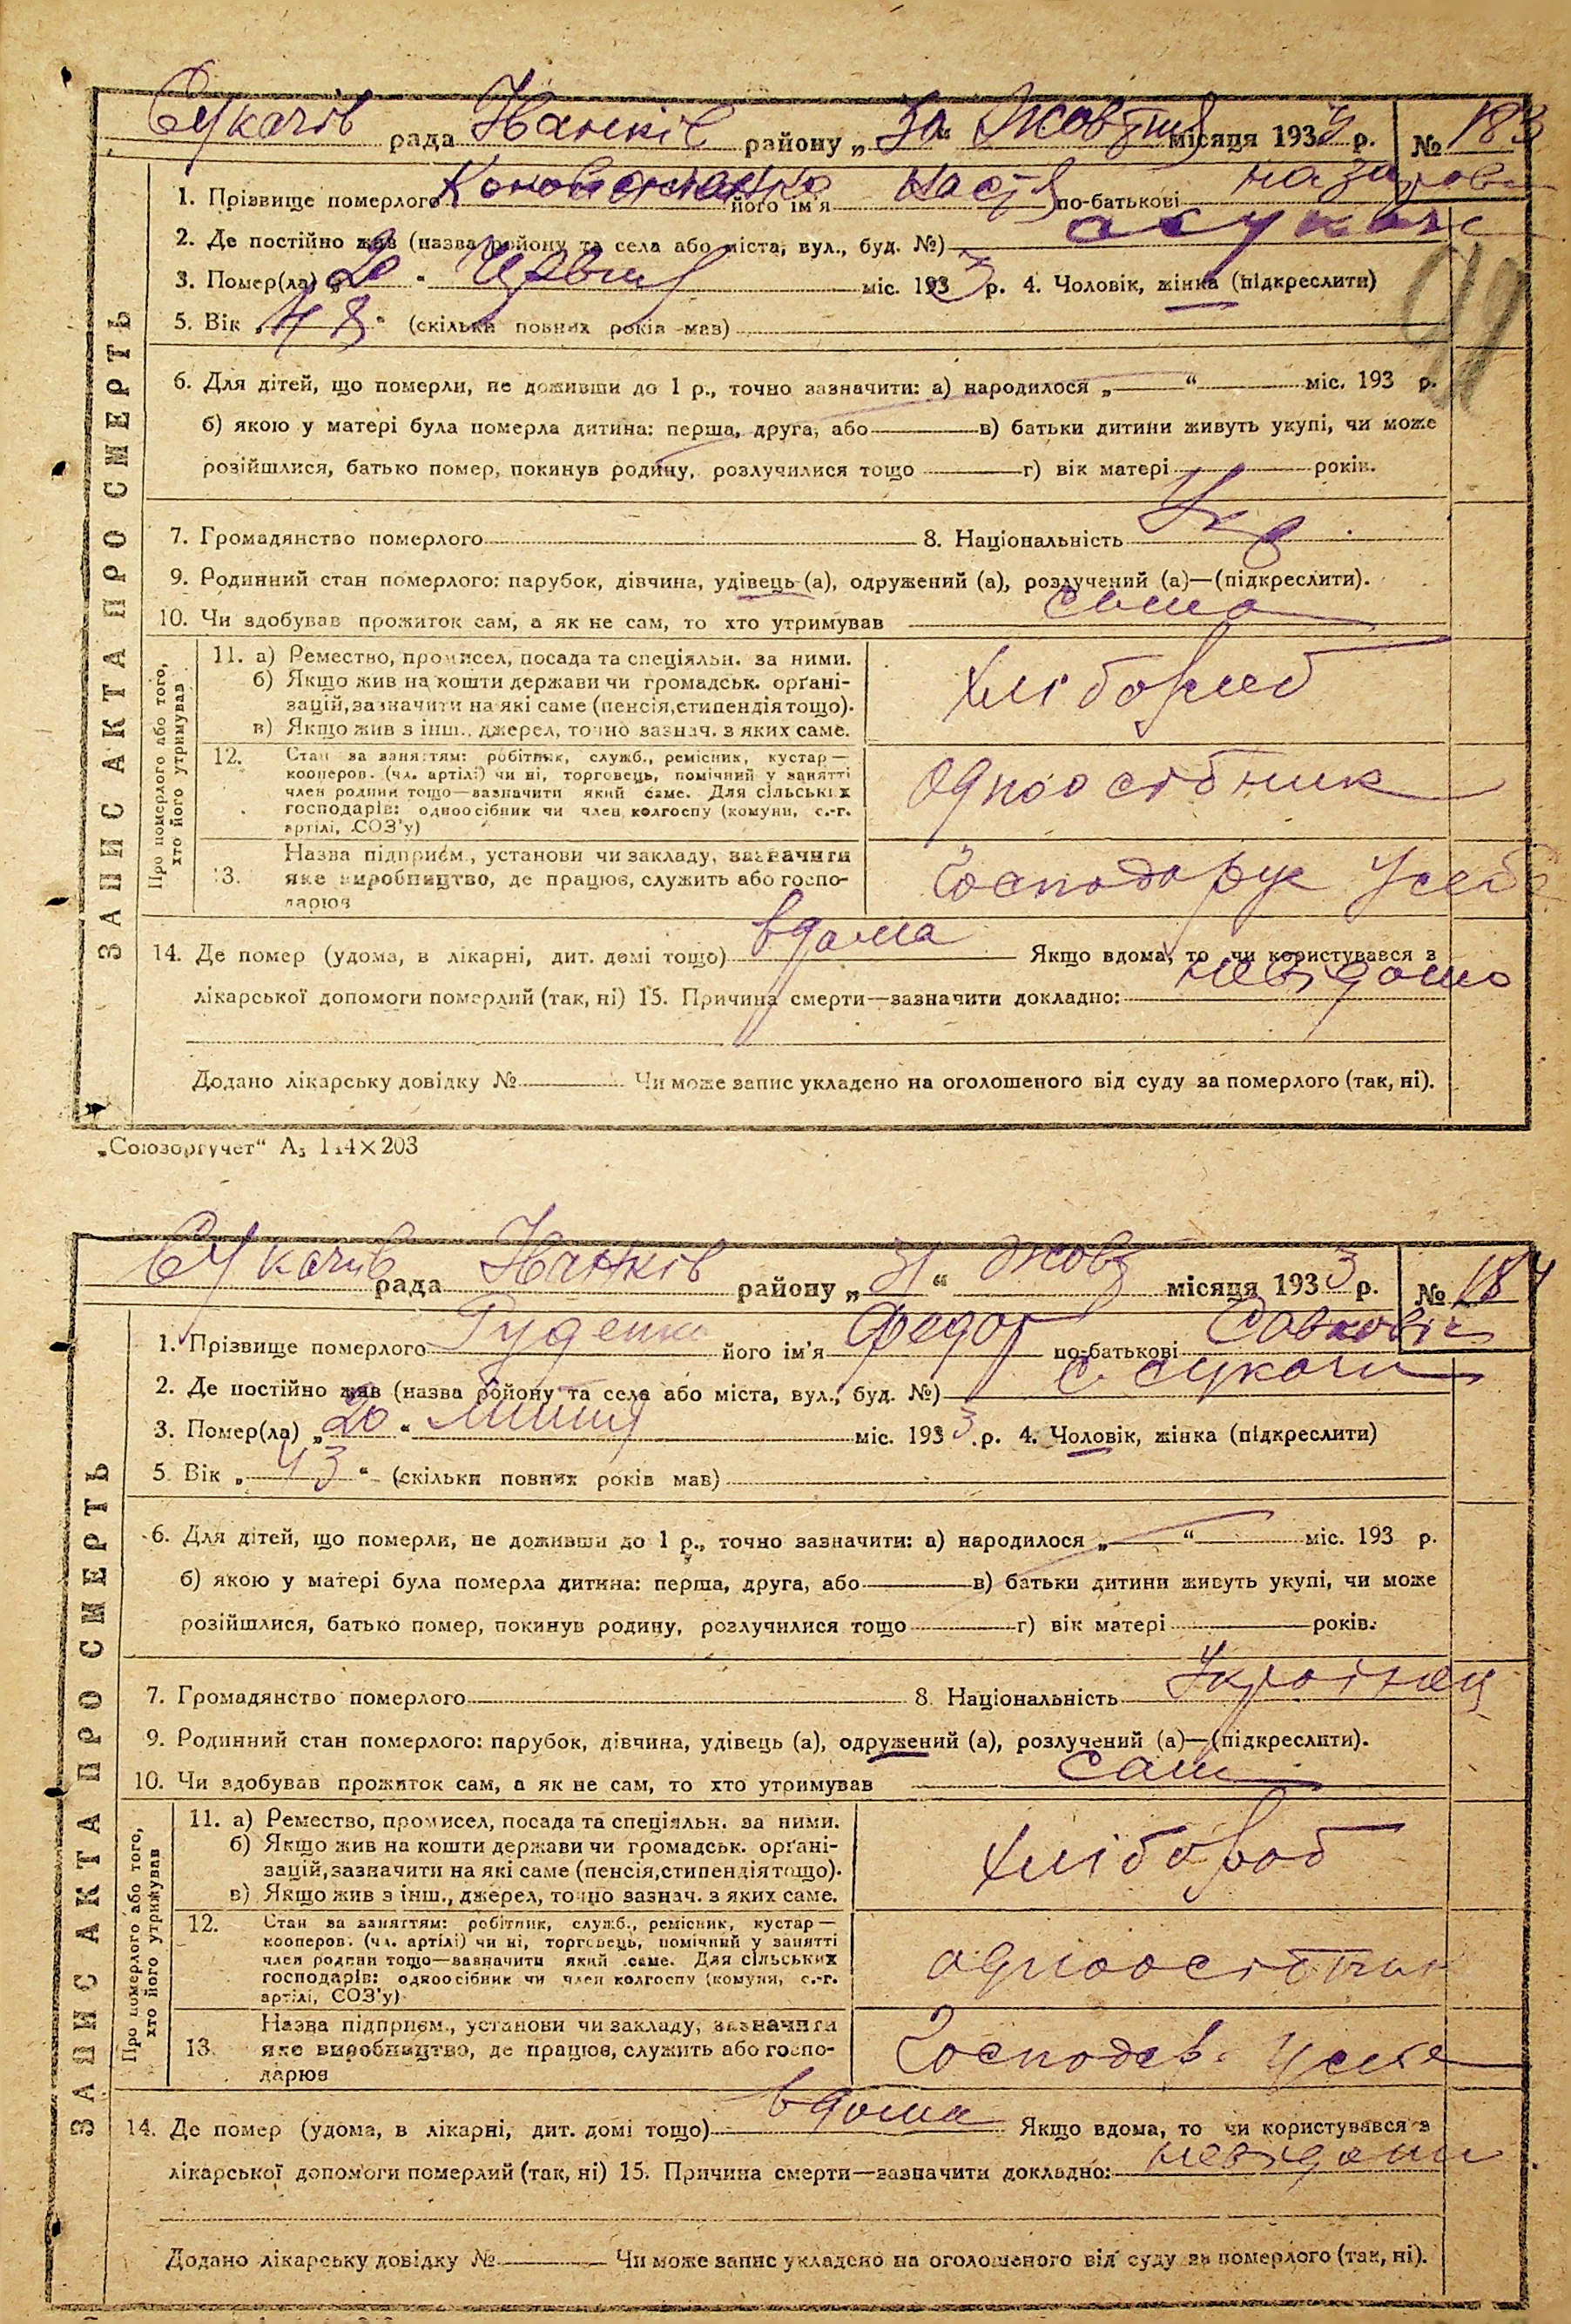 Сукачів рада Іванків району „30“ Жовтня місяця 1933 р. № 183
ЗАПИС АКТА ПРО СМЕРТЬ
1. Прізвище померлого його ім'я Настя по-батькові Назарова
2. Де постійно жив (назва району та села або міста, вул., буд. №) с сукачі
3. Помер(ла) „20“ Червня міс. 1933 р. 4. Чоловік, жінка (підкреслити)
5. Вік „48“ (скільки повних років мав)
6. Для дітей, що померли, не доживши до 1 р., точно зазначити: а) народилося „ “ міс. 193 р.
б) якою у матері була померла дитина: перша, друга, або в) батьки дитини живуть укупі, чи може
розійшлися, батько помер, покинув родину, розлучилися тощо г) вік матері років.
7. Громадянство померлого 8. Національність Укр
9. Родинний стан померлого: парубок, дівчина, удівець (а), одружений (а), розлучений (а)—(підкреслити).
10. Чи здобував прожиток сам, а як не сам, то хто утримував сама
Про померлого або того, хто його утримував
11. а) Ремество, промисел, посада та спеціяльн. за ними.
б) Якщо жив на кошти держави чи громадськ. орґані-
зацій, зазначити на які саме (пенсія, стипендія тощо).
в) Якщо жив з інш., джерел, точно зазнач. з яких саме.
хлібороб
12. Стан за заняттям: робітник, служб., ремісник, кустар—
кооперов. (чл. артілі) чи ні, торговець, помічний у занятті
член родини тощо—зазначити який саме. Для сільських
господарів: одноосібник чи член колгоспу (комуни, с.-г.
артілі, СОЗ'у)
одноосібник
Назва підприєм., установи чи закладу, зазначити
13. яке виробництво, де працює, служить або госпо-
дарює
Господарує Усебе
14. Де помер (удома, в лікарні, дит. домі тощо) вдома Якщо вдома, то чи користувався з
лікарської допомоги померлий (так, ні) 15. Причина смерти—зазначити докладно: невідомо
Додано лікарську довідку № Чи може запис укладено на оголошеного від суду за померлого (так, ні).
„Союзоргучет“ А5 144×203
Сукачів рада Іванків району „31“ Жовт місяця 1933 р. № 184
ЗАПИС АКТА ПРО СМЕРТЬ
1. Прізвище померлого Руденко його ім'я Федор по-батькові Савкович
2. Де постійно жив (назва району та села або міста, вул., буд. №) с. сукачі
3. Помер(ла) „20“ липня міс. 1933 р. 4. Чоловік, жінка (підкреслити)
5. Вік „43“ (скільки повних років мав)
6. Для дітей, що померли, не доживши до 1 р., точно зазначити: а) народилося „ “ міс. 193 р.
б) якою у матері була померла дитина: перша, друга, або в) батьки дитини живуть укупі, чи може
розійшлися, батько помер, покинув родину, розлучилися тощо г) вік матері років.
7. Громадянство померлого 8. Національність Українец
9. Родинний стан померлого: парубок, дівчина, удівець (а), одружений (а), розлучений (а)—(підкреслити).
10. Чи здобував прожиток сам, а як не сам, то хто утримував сам
Про померлого або того, хто його утримував
11. а) Ремество, промисел, посада та спеціяльн. за ними.
б) Якщо жив на кошти держави чи громадськ. орґані-
зацій, зазначити на які саме (пенсія, стипендія тощо).
в) Якщо жив з інш., джерел, точно зазнач. з яких саме.
хлібороб
12. Стан за заняттям: робітник, служб., ремісник, кустар—
кооперов. (чл. артілі) чи ні, торговець, помічний у занятті
член родини тощо—зазначити який саме. Для сільських
господарів: одноосібник чи член колгоспу (комуни, с.-г.
артілі, СОЗ'у)
одноосібник
Назва підприєм., установи чи закладу, зазначити
13. яке виробництво, де працює, служить або госпо-
дарює
Господар. Усебе
14. Де помер (удома, в лікарні, дит. домі тощо) вдома Якщо вдома, то чи користувався з
лікарської допомоги померлий (так, ні) 15. Причина смерти—зазначити докладно: невідомо
Додано лікарську довідку № Чи може запис укладено на оголошеного від суду за померлого (так, ні).